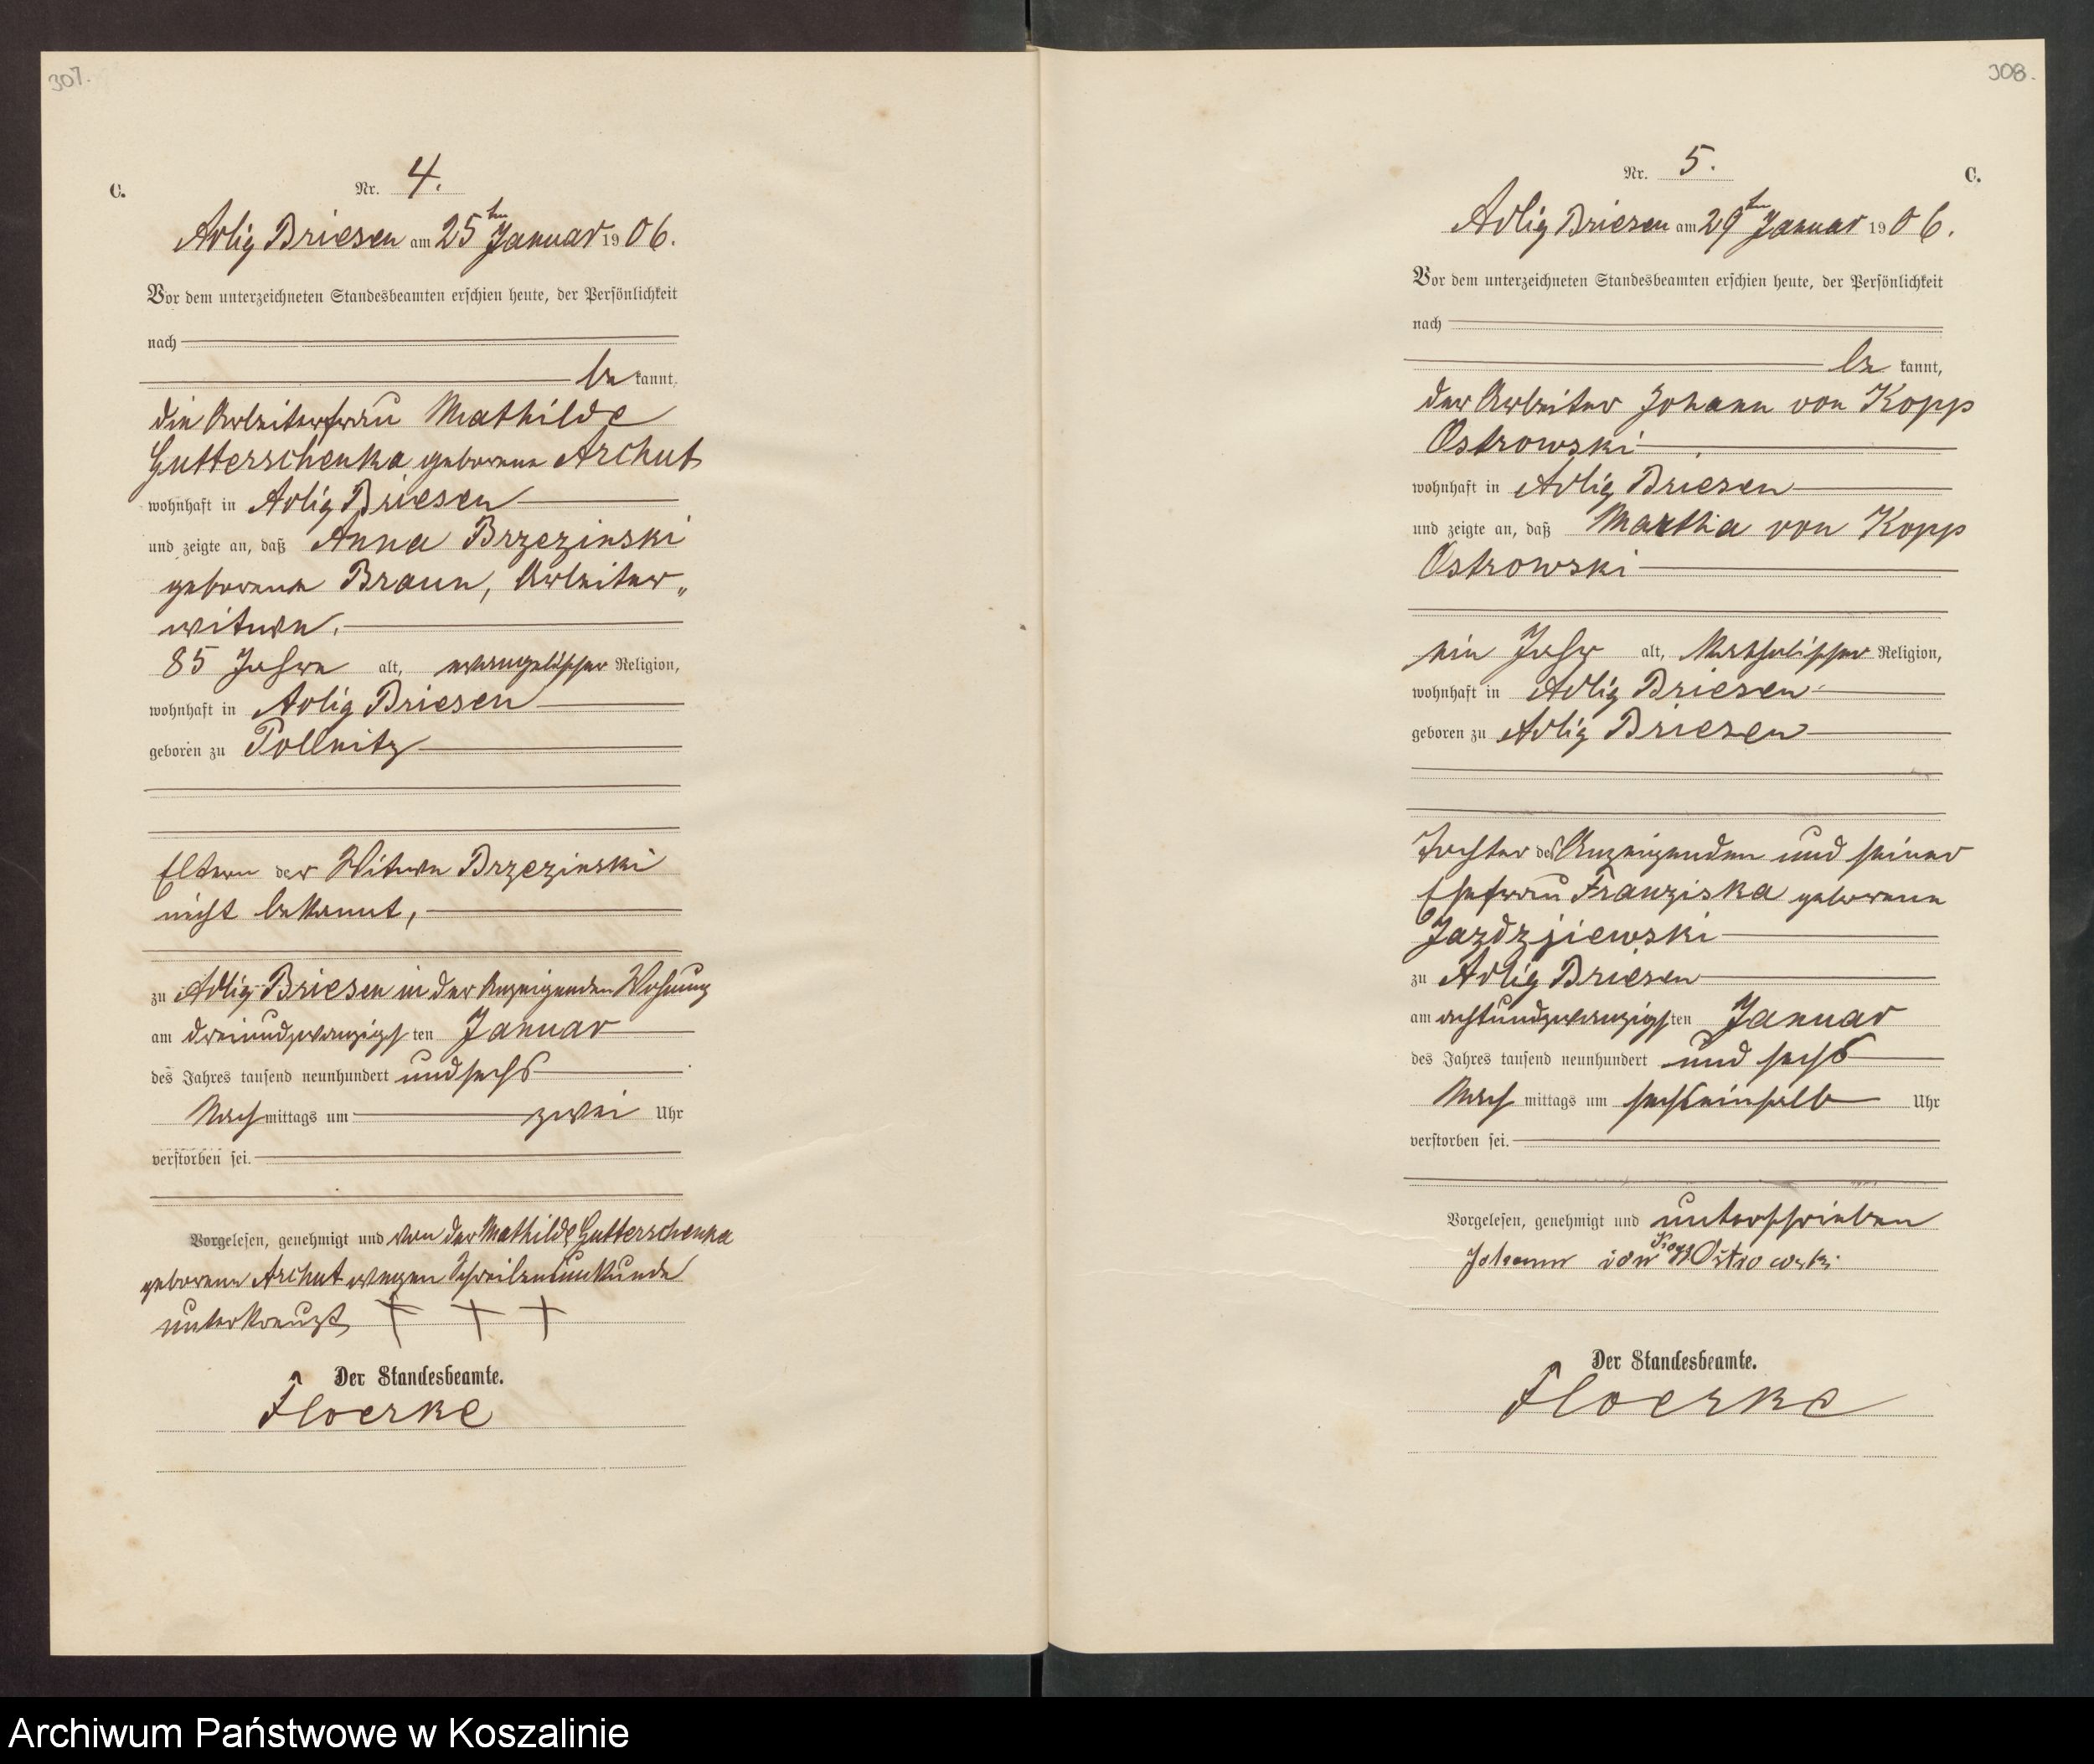 307.
C.
Nr. 4.
Adlig Briesen am 25ten Januar 1906.
Vor dem unterzeichneten Standesbeamten erschien heute, der Persönlichkeit
nach
be kannt,
die Arbeiterfrau Mathilde
Gutterschenka geborene Archut
wohnhaft in Adlig Briesen
und zeigte an, daß Anna Brzezinski
geborene Braun, Arbeiter„
witwe.
85 Jahre alt, evangelischer Religion,
wohnhaft in Adlig Briesen
geboren zu Pollnitz
Eltern der Witwe Brzezinski
nicht bekannt,
zu Adlig Briesen in der Anzeigenden Wohnung
am dreiundzwanzigsten Januar
des Jahres tausend neunhundert und sechs
Nachmittags um zwei Uhr
verstorben sei.
Vorgelesen, genehmigt und von der Mathilde Gutterschenka
geborene Archut wegen Schreibensunkunde
unterkreuzt
Der Standesbeamte.
Floerke
308.
C.
Nr. 5.
Adlig Briesen am 29ten Januar 1906.
Vor dem unterzeichneten Standesbeamten erschien heute, der Persönlichkeit
nach
be kannt,
der Arbeiter Johann von Kopp
Ostrowski
wohnhaft in Adlig Briesen
und zeigte an, daß Martha von Kopp
Ostrowski
ein Jahr alt, katholischer Religion,
wohnhaft in Adlig Briesen
geboren zu Adlig Briesen
Tochter des Anzeigenden und seiner
Ehefrau Franziska geborene
Jazdzjiewski
zu Adlig Briesen
am achtundzwanzigsten Januar
des Jahres tausend neunhundert und sechs
Nachmittags um sechseinhalb Uhr
verstorben sei.
Vorgelesen, genehmigt und unterschrieben
Johann von Ostrowski
Der Standesbeamte.
Floerke
Archiwum Państwowe w Koszalinie